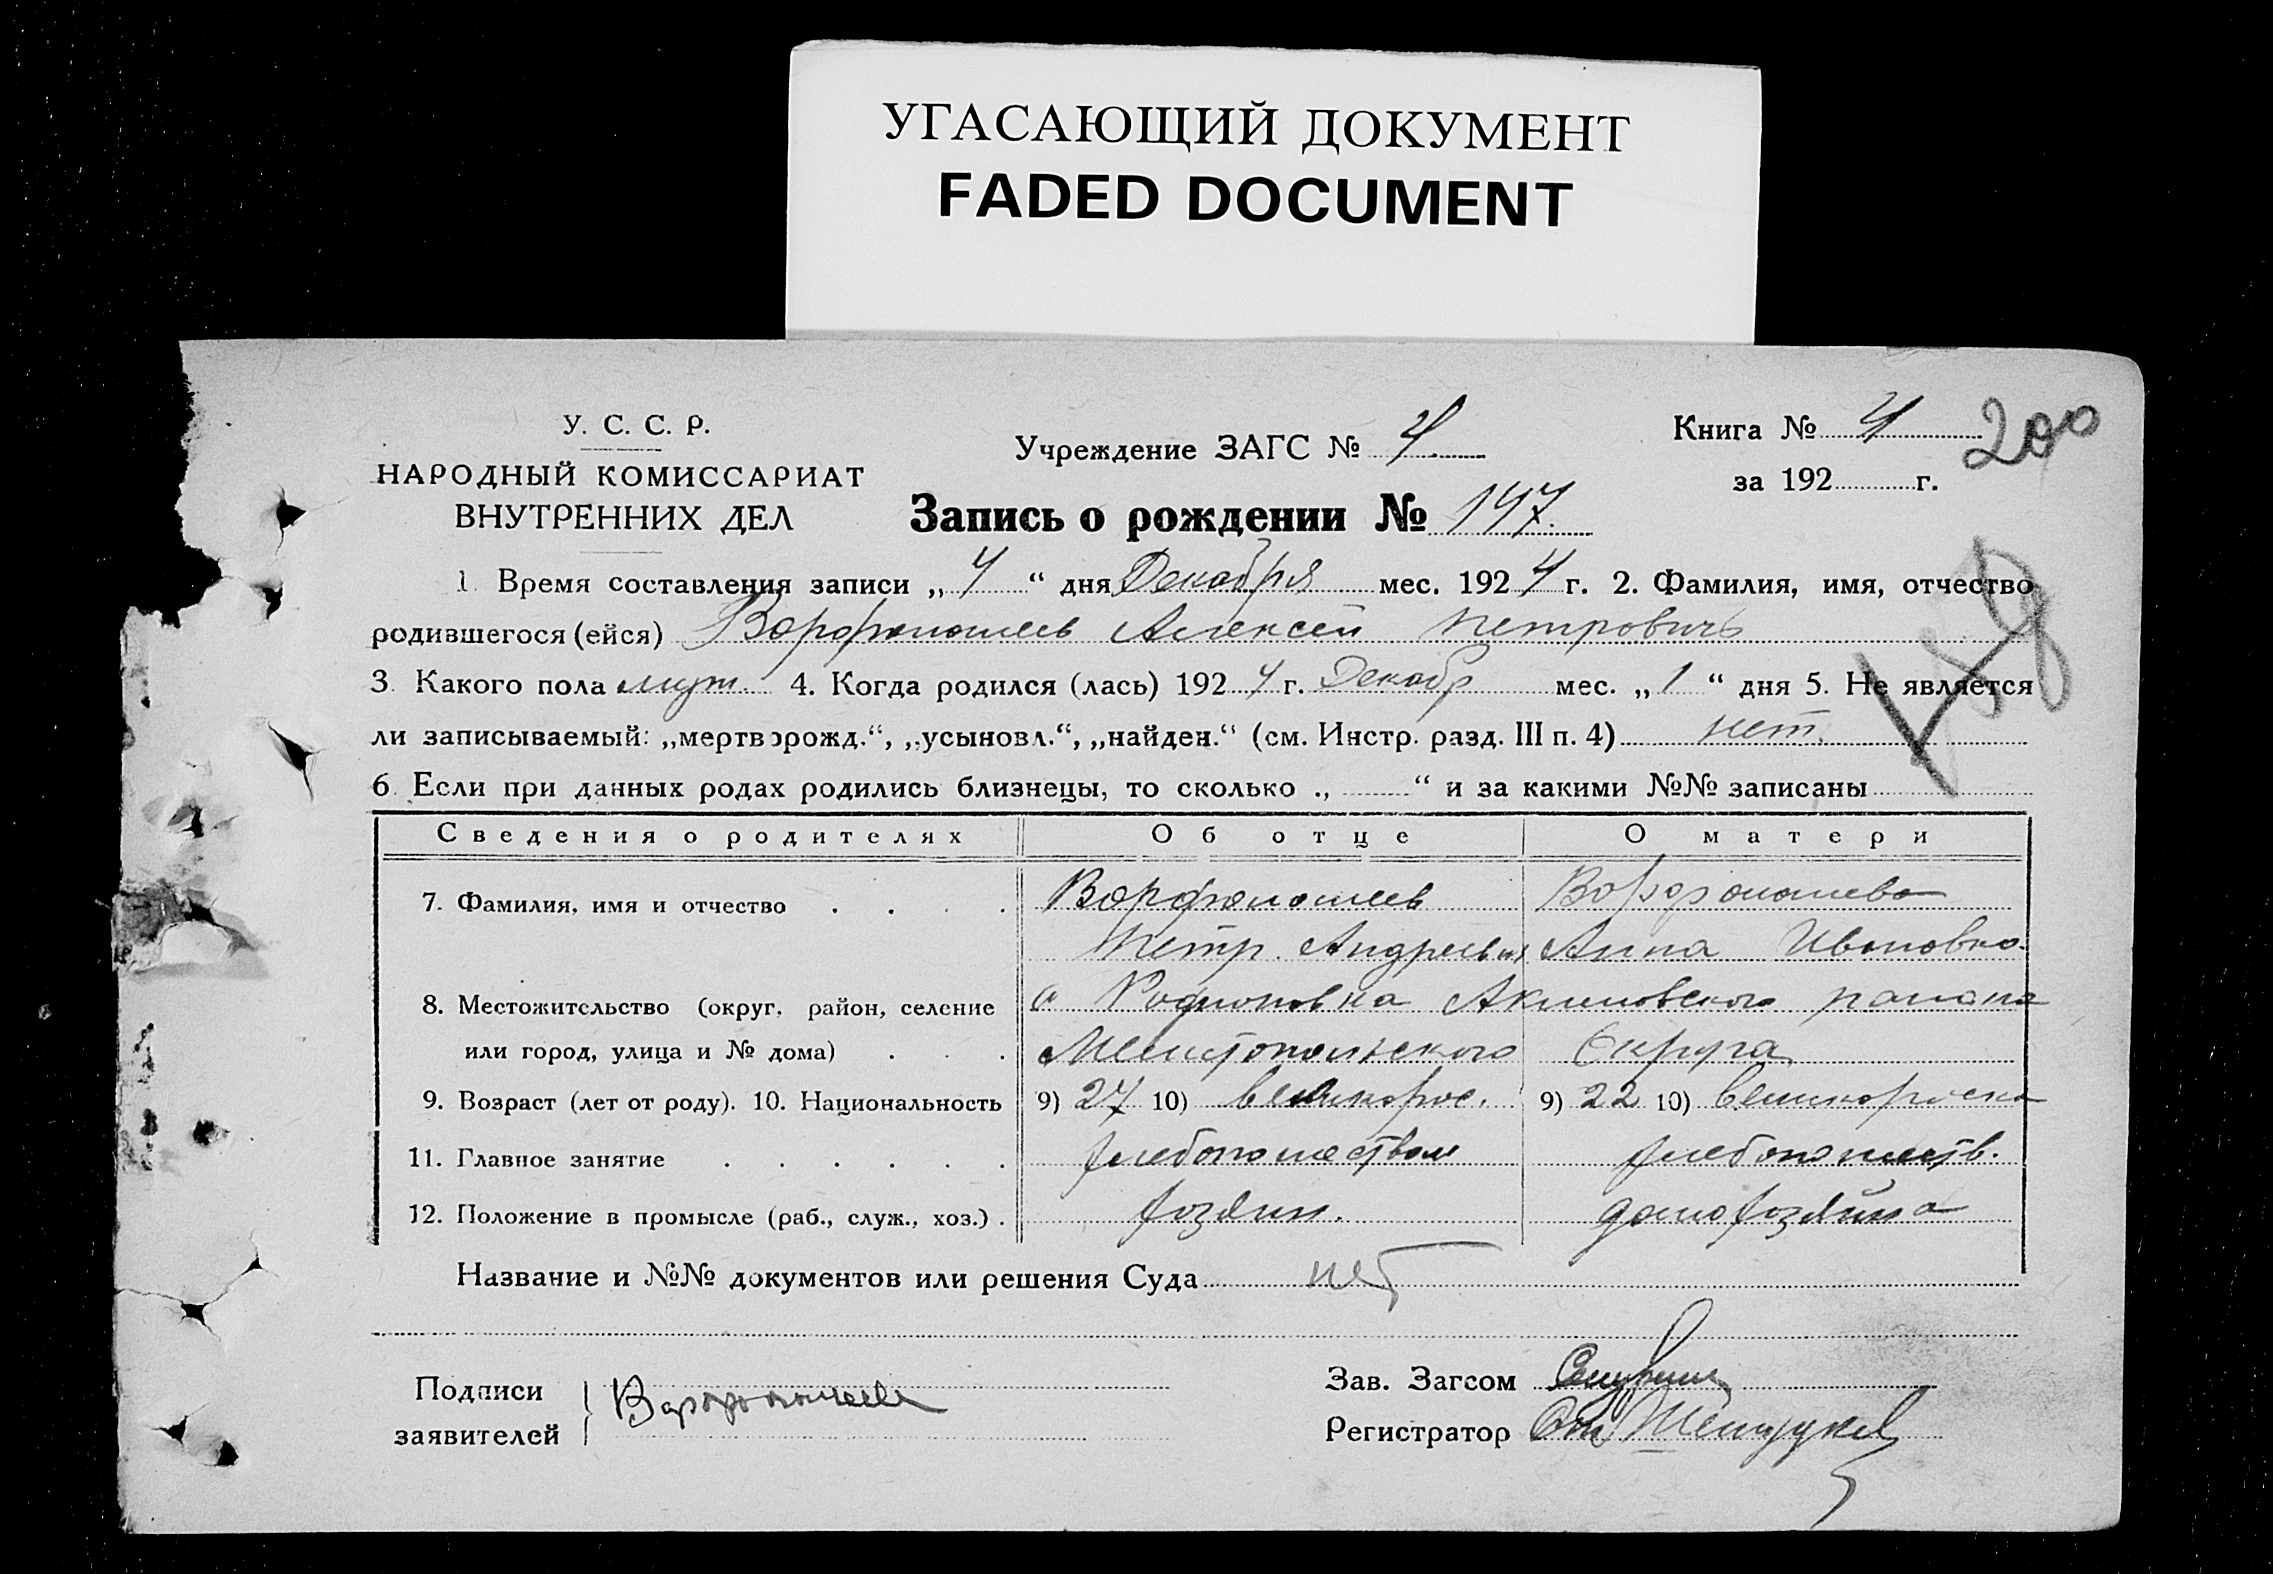 УГАСАЮЩИЙ ДОКУМЕНТ
FADED DOCUMENT
У. С. С. Р.
НАРОДНЫЙ КОМИССАРИАТ
ВНУТРЕННИХ ДЕЛ
Учреждение ЗАГС № 4
Книга № 4 200
за 192 г.
Запись о рождении № 197.
1. Время составления записи „ 4 “ дня Декабря мес. 1924 г. 2. Фамилия, имя, отчество
родившегося (ейся) Ворфоломеев Алексей Петровичъ
3. Какого пола муж. 4. Когда родился (лась) 1924 г. Декабр мес. „ 1 “ дня 5. Не является
ли записываемый: „мертворожд.“, „усыновл.“, „найден.“ (см. Инстр. разд. III п. 4) нет.
6. Если при данных родах родились близнецы, то сколько „ “ и за какими №№ записаны
Сведения о родителях Об отце О матери
7. Фамилия, имя и отчество Ворфоломеев Ворфоломева
Петр. Андреевич Анна Ивановна
8. Местожительство (округ, район, селение с Акимовского района
или город, улица и № дома) Мелитопольского Округа
9. Возраст (лет от роду). 10. Национальность 9) 27 10) великорос. 9) 22 10) великороска
11. Главное занятие хлебопашеством хлебопашеств.
12. Положение в промысле (раб., служ., хоз.) хозяин. домохозяйка
Название и №№ документов или решения Суда нет
Подписи
заявителей
Зав. Загсом
Регистратор